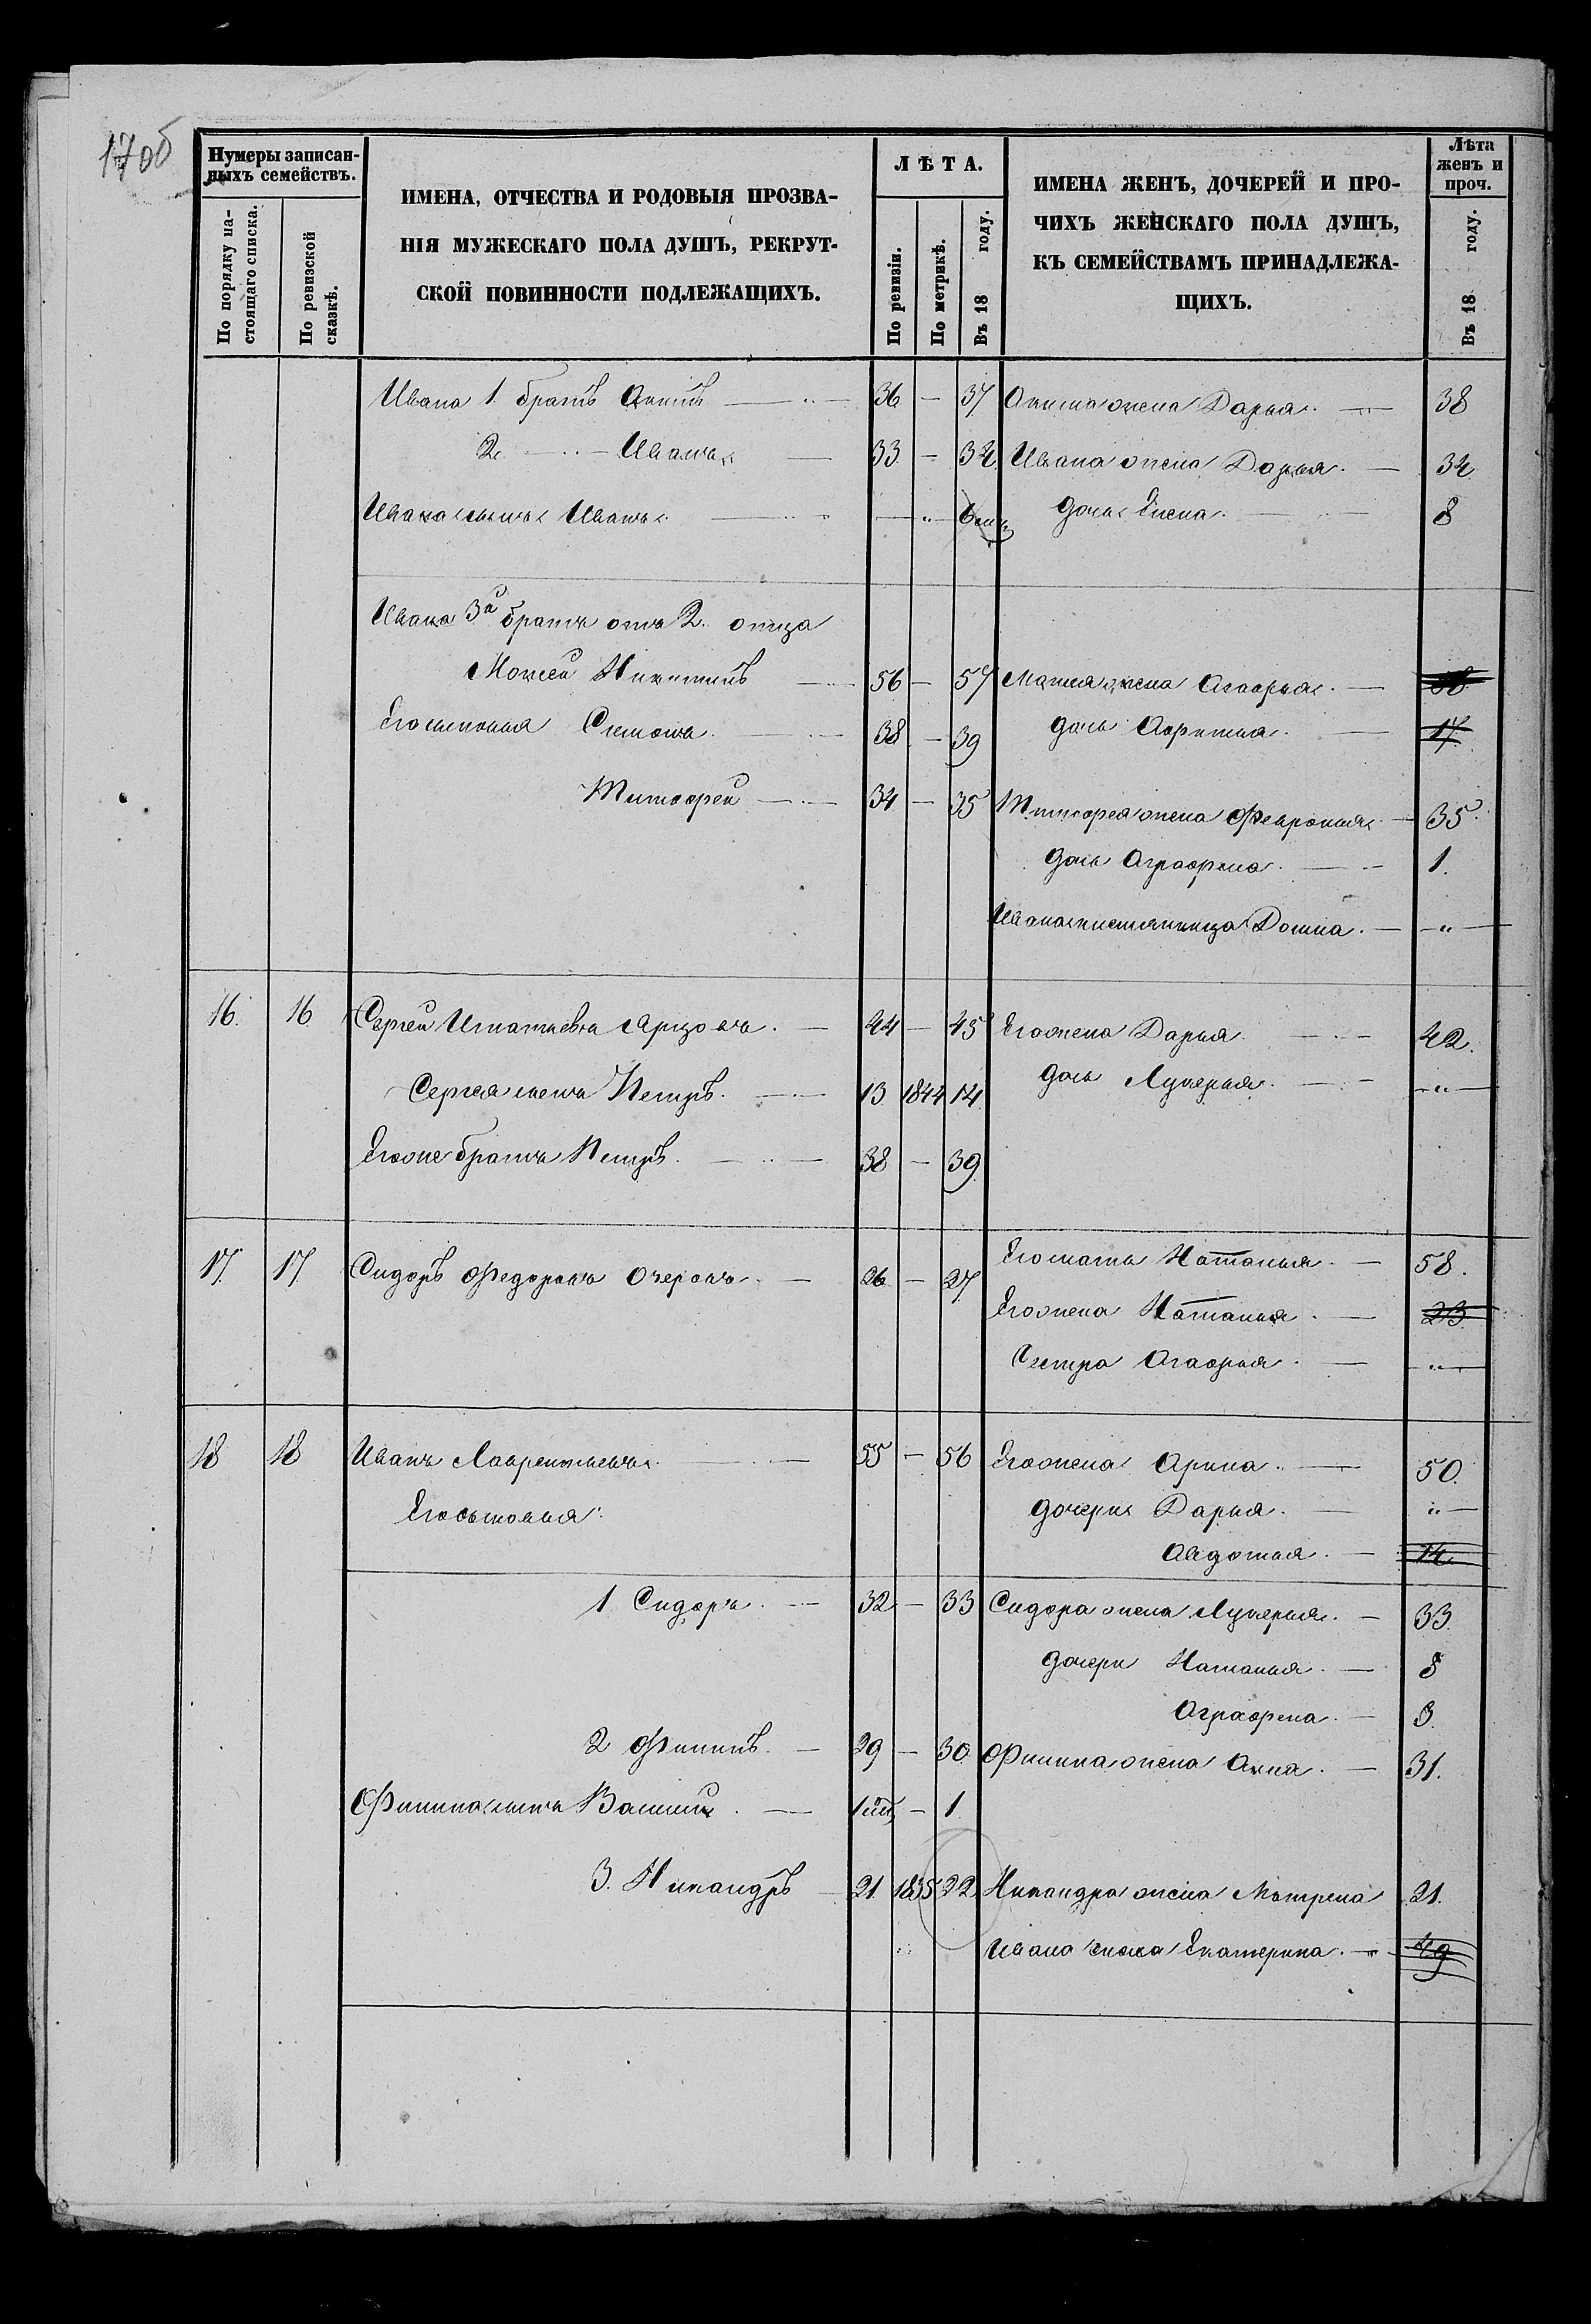 17 об
Нумеры записан-
ныхъ семействъ.
По порядку на-
стоящаго списка.
По ревизской
сказкѣ.
ИМЕНА, ОТЧЕСТВА И РОДОВЫЯ ПРОЗВА-
НІЯ МУЖЕСКАГО ПОЛА ДУШЪ, РЕКРУТ-
СКОЙ ПОВИННОСТИ ПОДЛЕЖАЩИХЪ.
ЛѢТА.
По ревизіи.
По метрикѣ.
Въ 18 году.
ИМЕНА ЖЕНЪ, ДОЧЕРЕЙ И ПРО-
ЧИХЪ ЖЕНСКАГО ПОЛА ДУШЪ,
КЪ СЕМЕЙСТВАМЪ ПРИНАДЛЕЖА-
ЩИХЪ.
Лѣта
женъ и
проч.
Въ 18 году.
Ивана 1. братъ — 36 — 37 жена Дарья. — 38
2 — „ — Иванъ — 33 — 34 Ивана жена Дарья. — 34
Ивана сынъ Иванъ. — „ — 6 дочь — 8
Ивана 3й братъ отъ 2. отца
Мокей Никитинъ — 56 — 57 Мокея жена Агафья. —
Его сыновья Симонъ. — 38 — 39 дочь — 17
Тимофей — 34 — 35 Тимофея жена Февронья — 35.
дочь Аграфена. — 1.
Ивана племянница Домна. — „ —
16. 16 Сергей Игнатьевъ — 44 — 45 Его жена Дарья. — 42.
Сергея сынъ Петръ. — 13 1844 14 дочь Лукерья. — „ —
Его же братъ Петръ. — 38 — 39
17. 17 Сидоръ Федоровъ — 26 — 27 Его мать Наталья. — 58.
Его жена Наталья. — 23
Сестра Агафья. — „ —
18 18 Иванъ Лаврентьевъ. — 55 — 56 Его жена Арина. — 50.
Его сыновья: дочери Дарья. — „ —
Авдотья. — 14
1 Сидоръ. — 32 — 33 Сидора жена Лукерья. — 33.
дочери Наталья. — 8
Аграфена. — 3.
2 Филипъ. — 29 — 30 Филипа жена Анна. — 31.
Филипа сынъ Василий. — 1 — 1
3. Никандръ — 21 1835 22 Никандра жена Матрена 21.
Ивана Екатерина. — 49